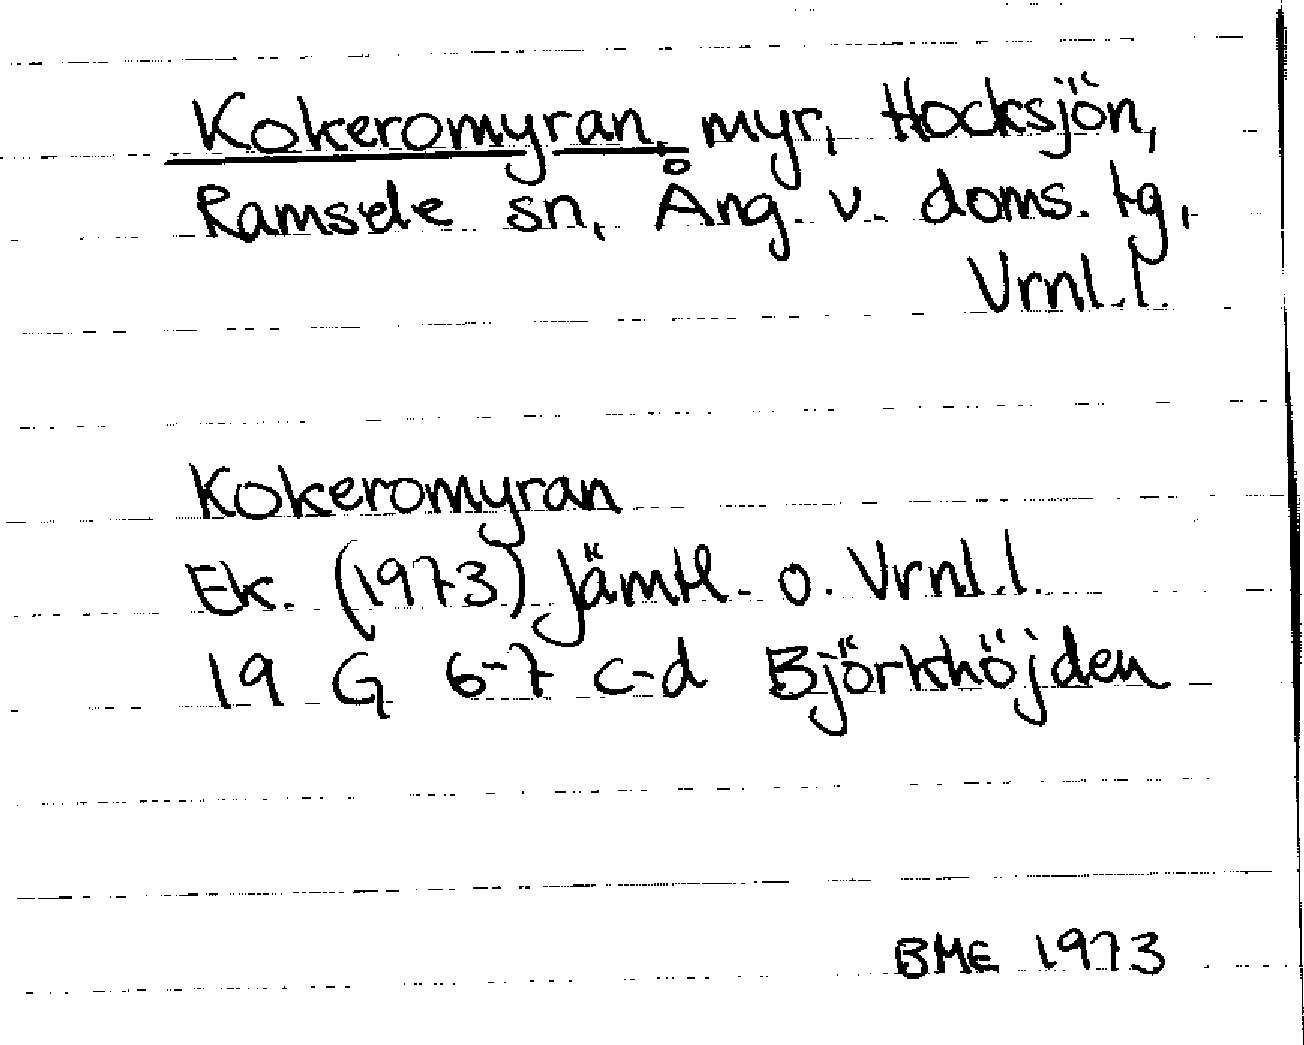 Kokeromyran, myr, Hocksjön,
Ramsele sn, Ång. v. doms. tg,
Vrml.l.
Kokeromyran
Ek. (1973) Jämtl. o. Vrnl.l.
19 G 6-7 c-d Björkhöjden
BME 1973